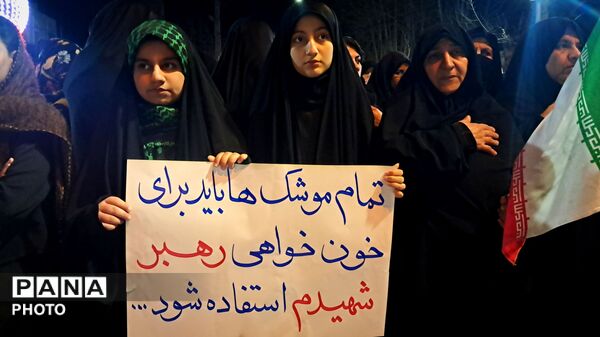 تمام موشک ها باید برای
خون خواهی رهبر
شهیدم استفاده شود...
PANA
PHOTO